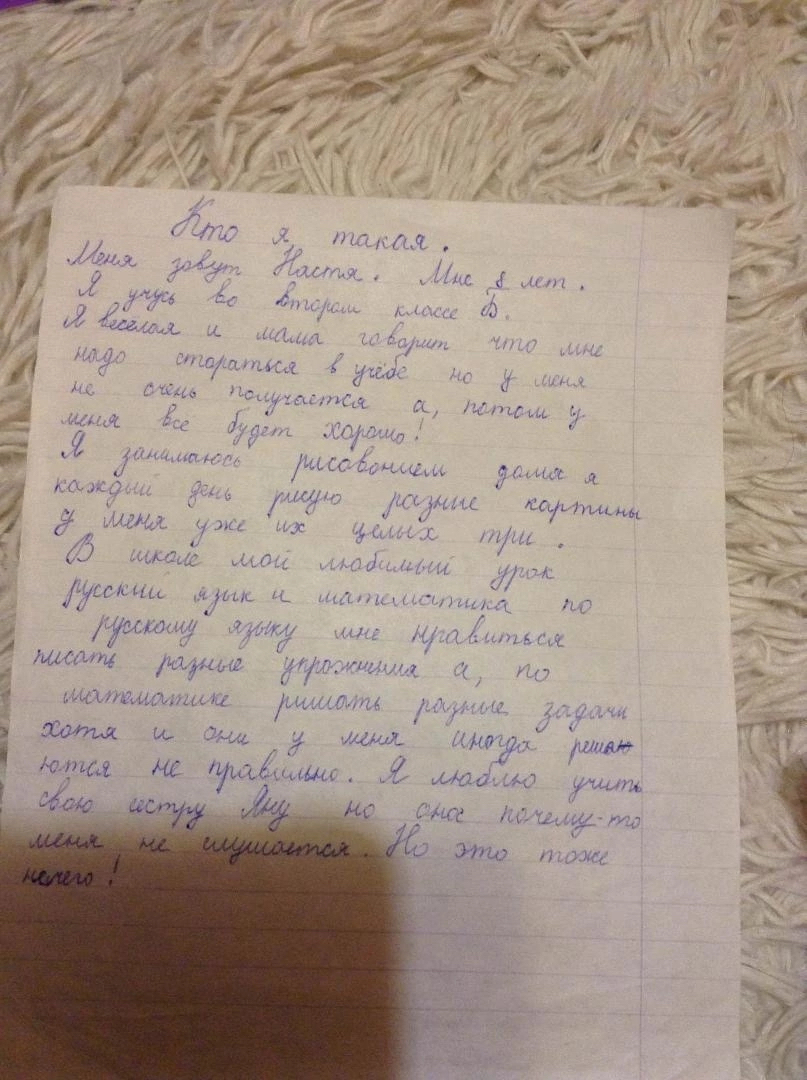 Кто я такая.
Меня зовут Настя. Мне 8 лет.
Я учусь во втором классе Б.
Я весёлая и мама говорит что мне
надо стораться в учёбе но у меня
не очень получается а, потом у
меня все будет хорошо!
Я занимаюсь рисованием дома я
каждый день рисую разные картины
у меня уже их целых три.
В школе мой любимый урок
русский язык и математика по
русскому языку мне нравиться
писать разные упражнения а, по
математике ришать разные задачи
хотя и они у меня иногда решаю
ются не правильно. Я люблю учить
свою сестру Яну но она почему-то
меня не слушается. Но это тоже
нечего!